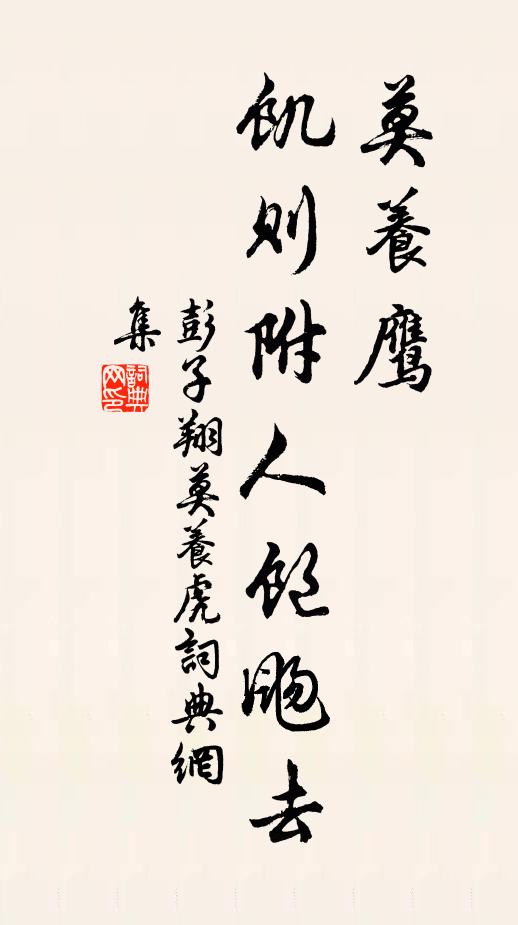 莫養鷹
飢則附人飽颺去
彭子翔莫養虎詞典網
集
詞典
网印